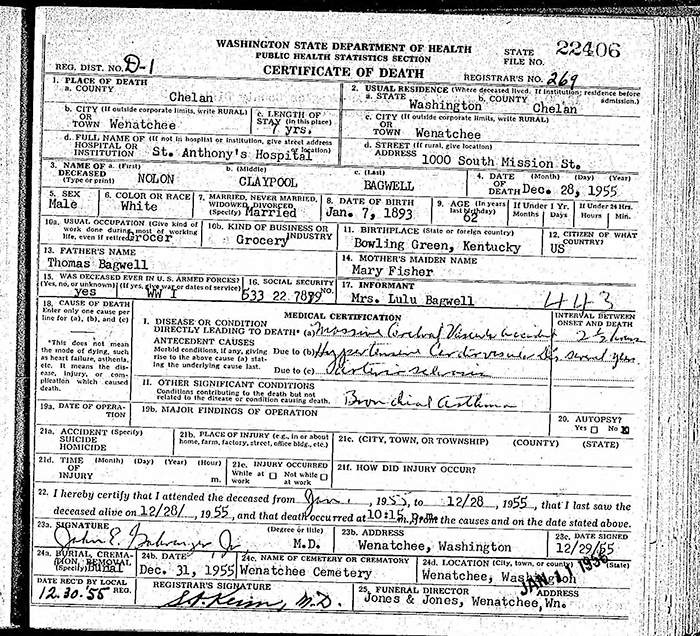 WASHINGTON STATE DEPARTMENT OF HEALTH
PUBLIC HEALTH STATISTICS SECTION
CERTIFICATE OF DEATH
STATE FILE NO. 22406
REG. DIST. NO. D-1
REGISTRAR'S NO. 269
1. PLACE OF DEATH
a. COUNTY
Chelan
2. USUAL RESIDENCE (Where deceased lived. If institution; residence before admission.)
a. STATE Washington b. COUNTY Chelan
b. CITY (If outside corporate limits, write RURAL)
OR TOWN Wenatchee
c. LENGTH OF STAY (in this place)
7 yrs.
c. CITY (If outside corporate limits, write RURAL)
OR TOWN Wenatchee
d. FULL NAME OF (If not in hospital or institution, give street address or location)
HOSPITAL OR INSTITUTION St. Anthony's Hospital
d. STREET (If rural, give location)
ADDRESS 1000 South Mission St.
3. NAME OF DECEASED (Type or print)
a. (First) b. (Middle) c. (Last)
NOLON CLAYPOOL BAGWELL
4. DATE OF DEATH (Month) (Day) (Year)
Dec. 28, 1955
5. SEX
Male
6. COLOR OR RACE
White
7. MARRIED, NEVER MARRIED, WIDOWED, DIVORCED (Specify) Married
8. DATE OF BIRTH
Jan. 7, 1893
9. AGE (In years last birthday)
62
If Under 1 Yr. Months Days
If Under 24 Hrs. Hours Min.
10a. USUAL OCCUPATION (Give kind of work done during most of working life, even if retired)
Grocer
10b. KIND OF BUSINESS OR INDUSTRY
Grocery
11. BIRTHPLACE (State or foreign country)
Bowling Green, Kentucky
12. CITIZEN OF WHAT COUNTRY?
US
13. FATHER'S NAME
Thomas Bagwell
14. MOTHER'S MAIDEN NAME
Mary Fisher
15. WAS DECEASED EVER IN U. S. ARMED FORCES?
(Yes, no, or unknown) (If yes, give war or dates of service)
yes WW I
16. SOCIAL SECURITY NO.
533 22
17. INFORMANT
Mrs. Lulu Bagwell
443
18. CAUSE OF DEATH
Enter only one cause per line for (a), (b), and (c)
*This does not mean the mode of dying, such as heart failure, asthenia, etc. It means the disease, injury, or complication which caused death.
MEDICAL CERTIFICATION
INTERVAL BETWEEN ONSET AND DEATH
I. DISEASE OR CONDITION
DIRECTLY LEADING TO DEATH* (a) Massive Cerebral Vascular accident
ANTECEDENT CAUSES
Morbid conditions, if any, giving rise to the above cause (a) stating the underlying cause last.
Due to (b) Hypertensive Cardiovascular Dis. several years
Due to (c)
II. OTHER SIGNIFICANT CONDITIONS
Conditions contributing to the death but not related to the disease or condition causing death.
Bronchial Asthma
19a. DATE OF OPERATION
19b. MAJOR FINDINGS OF OPERATION
20. AUTOPSY?
Yes No X
21a. ACCIDENT (Specify)
SUICIDE
HOMICIDE
21b. PLACE OF INJURY (e.g., in or about home, farm, factory, street, office bldg., etc.)
21c. (CITY, TOWN, OR TOWNSHIP) (COUNTY) (STATE)
21d. TIME (Month) (Day) (Year) (Hour)
OF INJURY m.
21e. INJURY OCCURRED
While at work Not while at work
21f. HOW DID INJURY OCCUR?
22. I hereby certify that I attended the deceased from Jan. , 1955, to 12/28 , 1955, that I last saw the
deceased alive on 12/28/ , 1955, and that death occurred at 10:15 p.m., from the causes and on the date stated above.
23a. SIGNATURE (Degree or title)
John E. Jr M.D.
23b. ADDRESS
Wenatchee, Washington
23c. DATE SIGNED
12/29/55
24a. BURIAL, CREMATION, REMOVAL (Specify) Burial
24b. DATE
Dec. 31, 1955
24c. NAME OF CEMETERY OR CREMATORY
Wenatchee Cemetery
24d. LOCATION (City, town, or county) (State)
Wenatchee, Washington
DATE REC'D BY LOCAL REG.
12.30.55
REGISTRAR'S SIGNATURE
M.D.
25. FUNERAL DIRECTOR ADDRESS
Jones & Jones, Wenatchee, Wn.